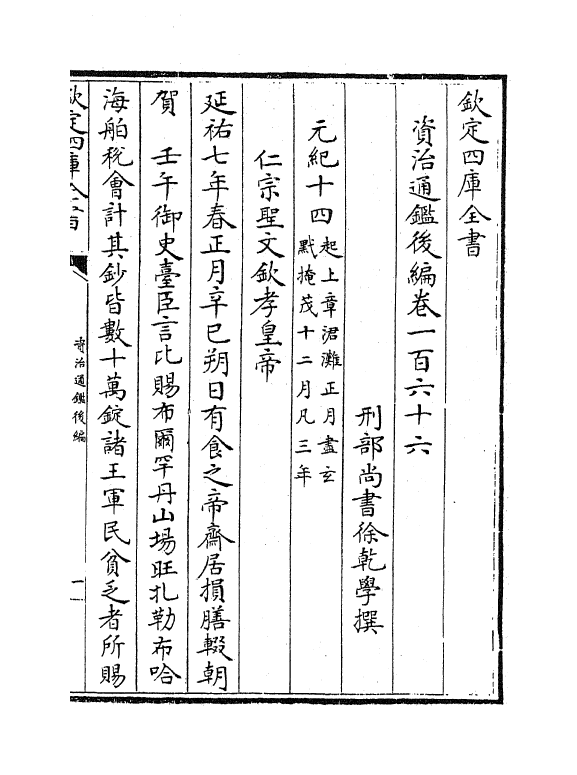 欽定四庫全書
資治通鑑後編卷一百六十六
刑部尚書徐乾學撰
元紀十四起上章涒灘正月盡玄
黓掩茂十二月凡三年
仁宗聖文欽孝皇帝
延祐七年春正月辛巳朔日有食之帝齋居損膳輟朝
賀　壬午御史臺臣言比賜布爾罕丹山場旺扎勒布哈
海舶稅會計其鈔皆數十萬錠諸王軍民貧乏者所賜
欽定四庫全書
資治通鑑後編
一